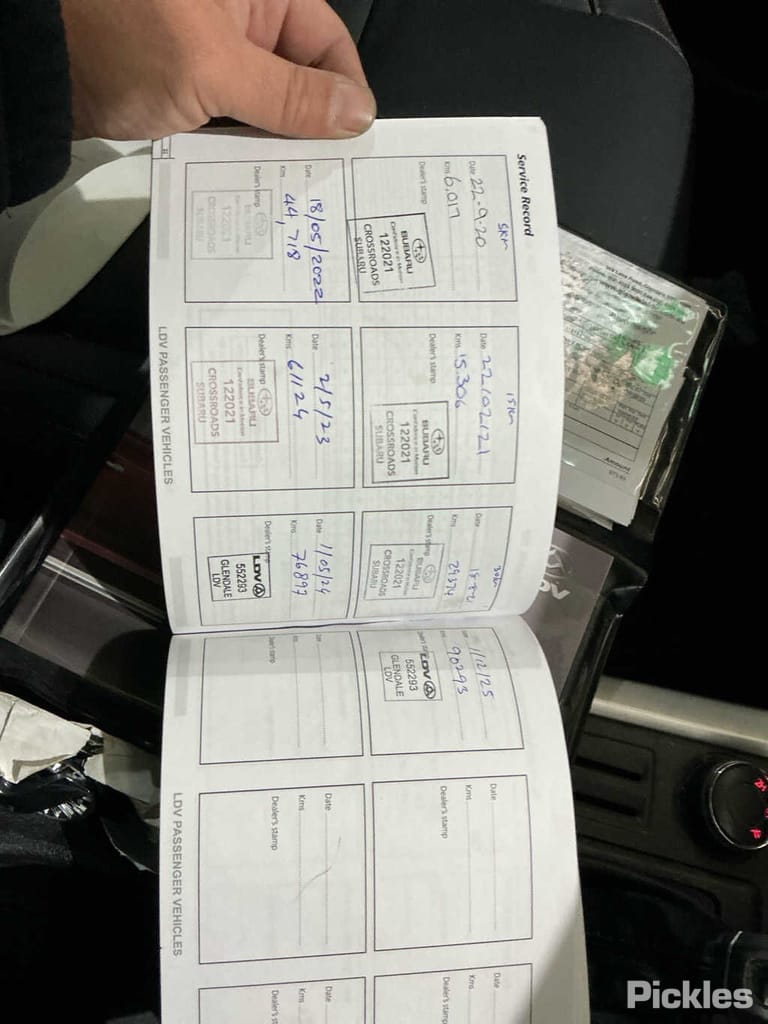 Service Record
5km
Date 22-9-20
Kms 6,017
Dealer's stamp
SUBARU
Confidence in Motion
122021
CROSSROADS
SUBARU
15km
Date 22/02/21
Kms 15.306
Dealer's stamp
SUBARU
Confidence in Motion
122021
CROSSROADS
SUBARU
30km
Date
Kms 29374
Dealer's stamp
SUBARU
Confidence in Motion
122021
CROSSROADS
SUBARU
Date 18/05/2022
Kms 44,718
Dealer's stamp
SUBARU
122021
CROSSROADS
SUBARU
Date 2/5/23
Kms 61124
Dealer's stamp
SUBARU
Confidence in Motion
122021
CROSSROADS
SUBARU
Date 1/05/24
Kms 76897
Dealer's stamp
LDV
552293
GLENDALE
LDV
LDV PASSENGER VEHICLES
Date 1/12/25
Kms 90293
Dealer's stamp
LDV
552293
GLENDALE
LDV
Date
Kms
Dealer's stamp
Date
Kms
Dealer's stamp
Date
Kms
Dealer's stamp
Date
Kms
Dealer's stamp
Date
Kms
Dealer's stamp
LDV PASSENGER VEHICLES
Amount
LDV
Pickles